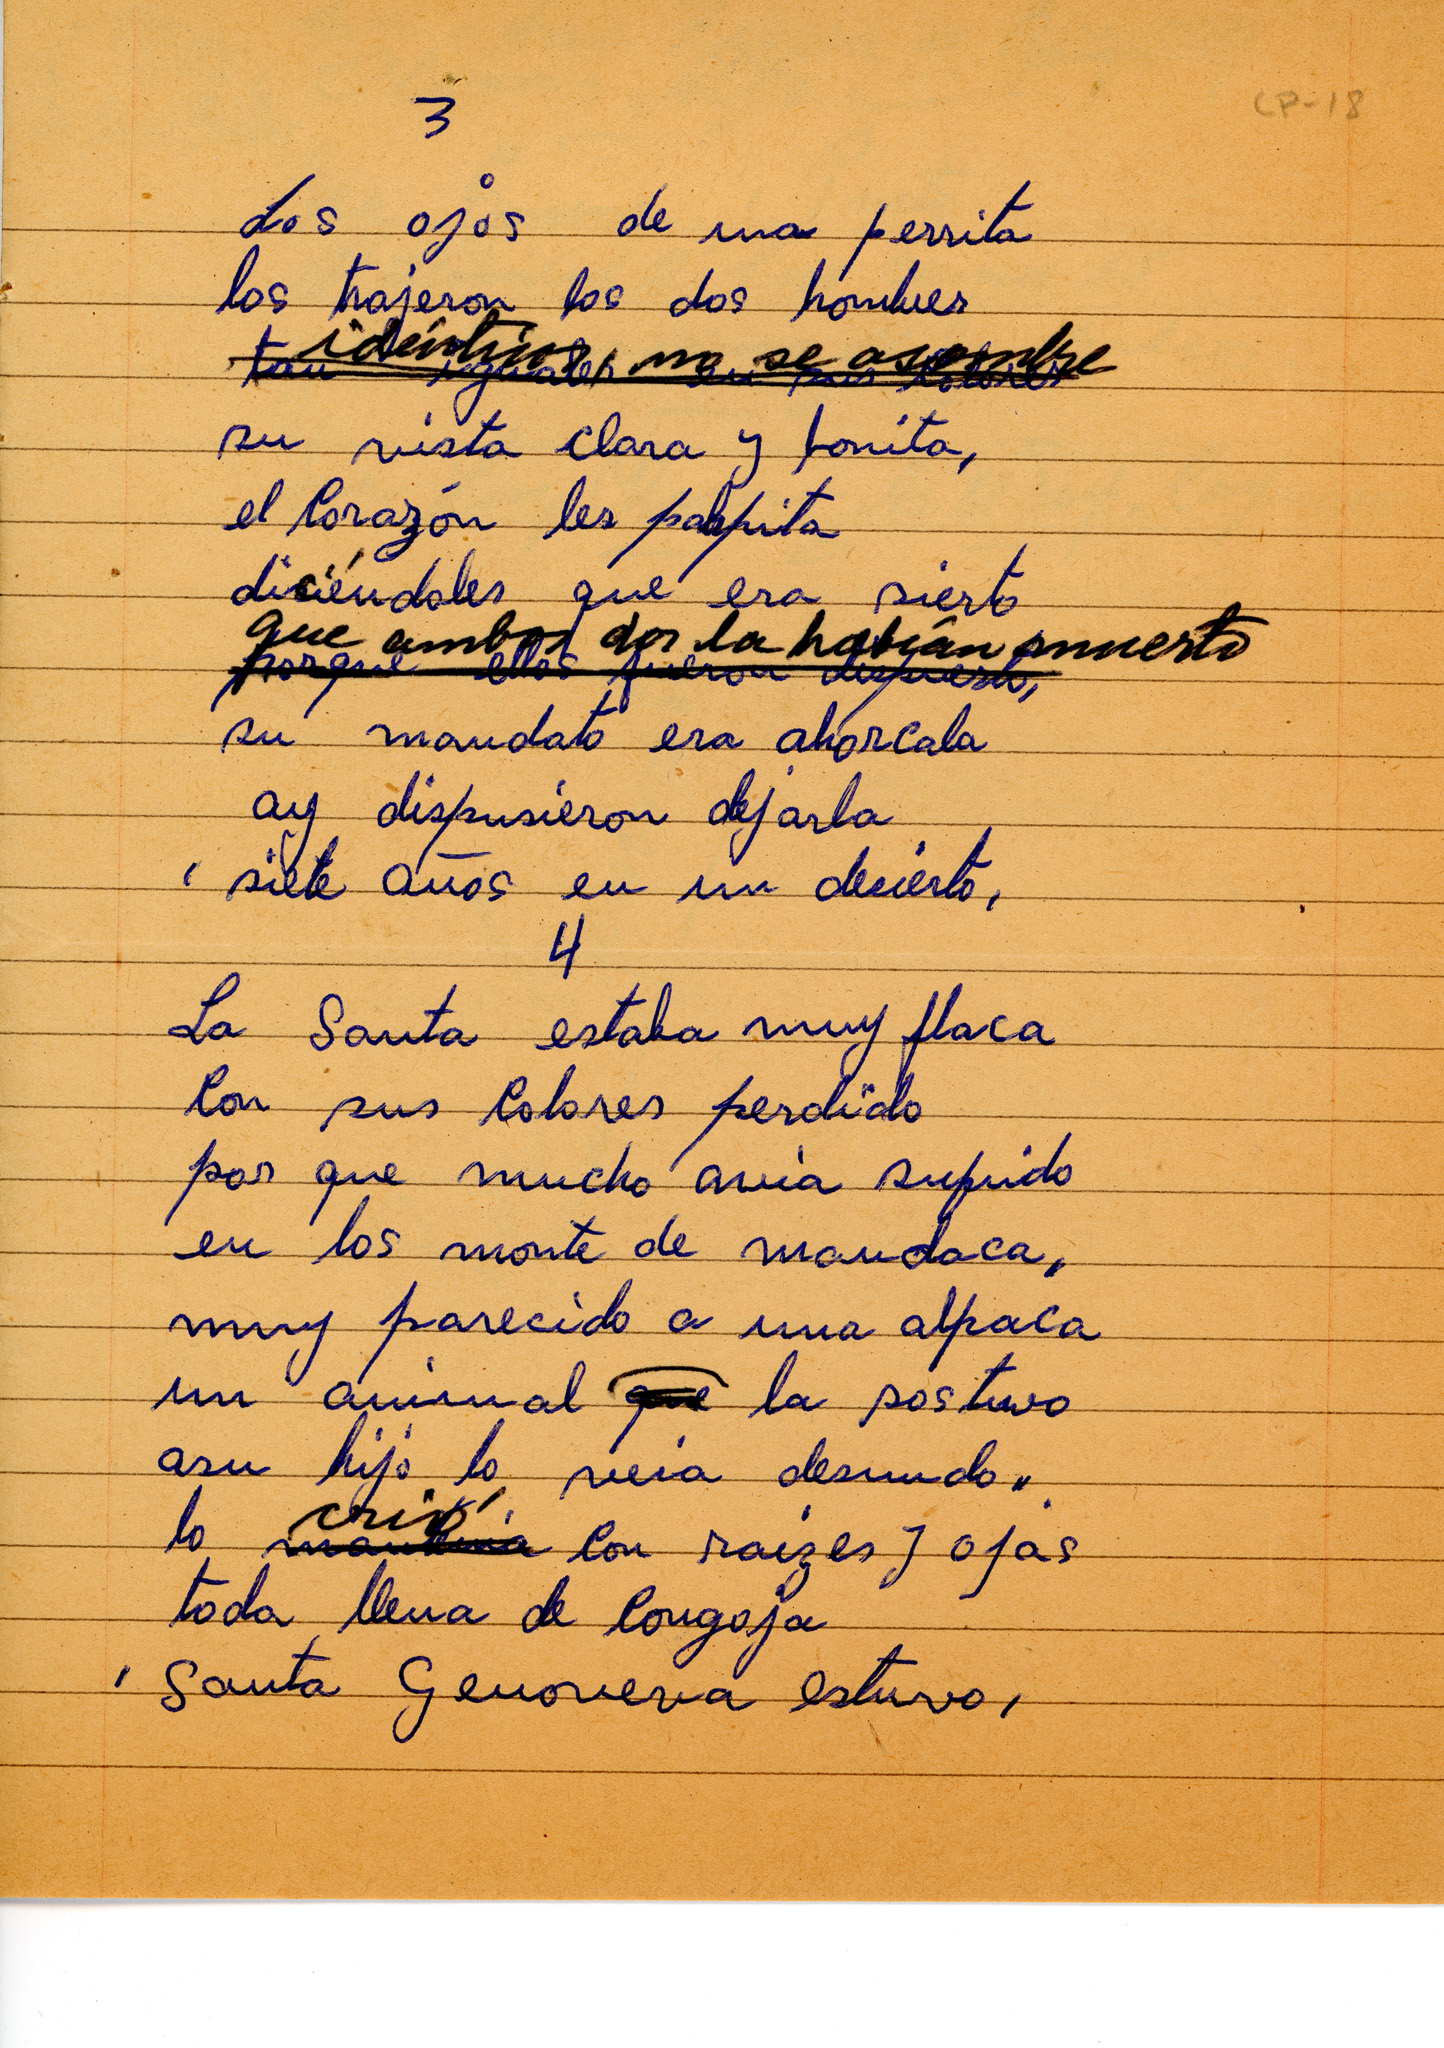 CP-18
3
Los ojos de una perrita
los trajeron los dos hombres
idénticos, no se asombre
tan iguales en sus colores
su vista clara y bonita,
el Corazón les palpita
diciéndoles que era sierto
que ambos dos la habían muerto
porque ellos fueron dispuesto,
su mandato era ahorcala
ay dispusieron dejarla
siete años en un decierto,
4
La Santa estaba muy flaca
Con sus Colores perdido
por que mucho avia sufrido
en los monte de mandaca,,
muy parecido a una alpaca
un animal que la sostuvo
asu hijo lo veia desnudo,,
crió
lo con raizes y ojas
toda llena de Congoja
Santa Genoveva estuvo,